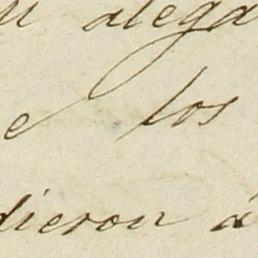 alega
e los
dieron á